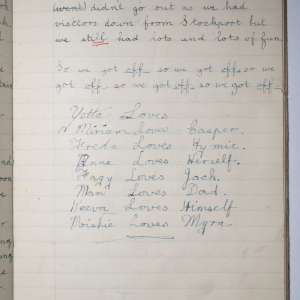 went) didnt go out as we had
visitors down from Stockport but
we still had lots and lots of fun.
So we got off so we got off so we
got off so we got off so we got off
Yetta Loves
Miriam Loves Casper.
Freda Loves Hymie.
Anne Loves Herself.
Fagy Loves Jack.
Mam Loves Dad.
Loves Himself
Moishie Loves Myra